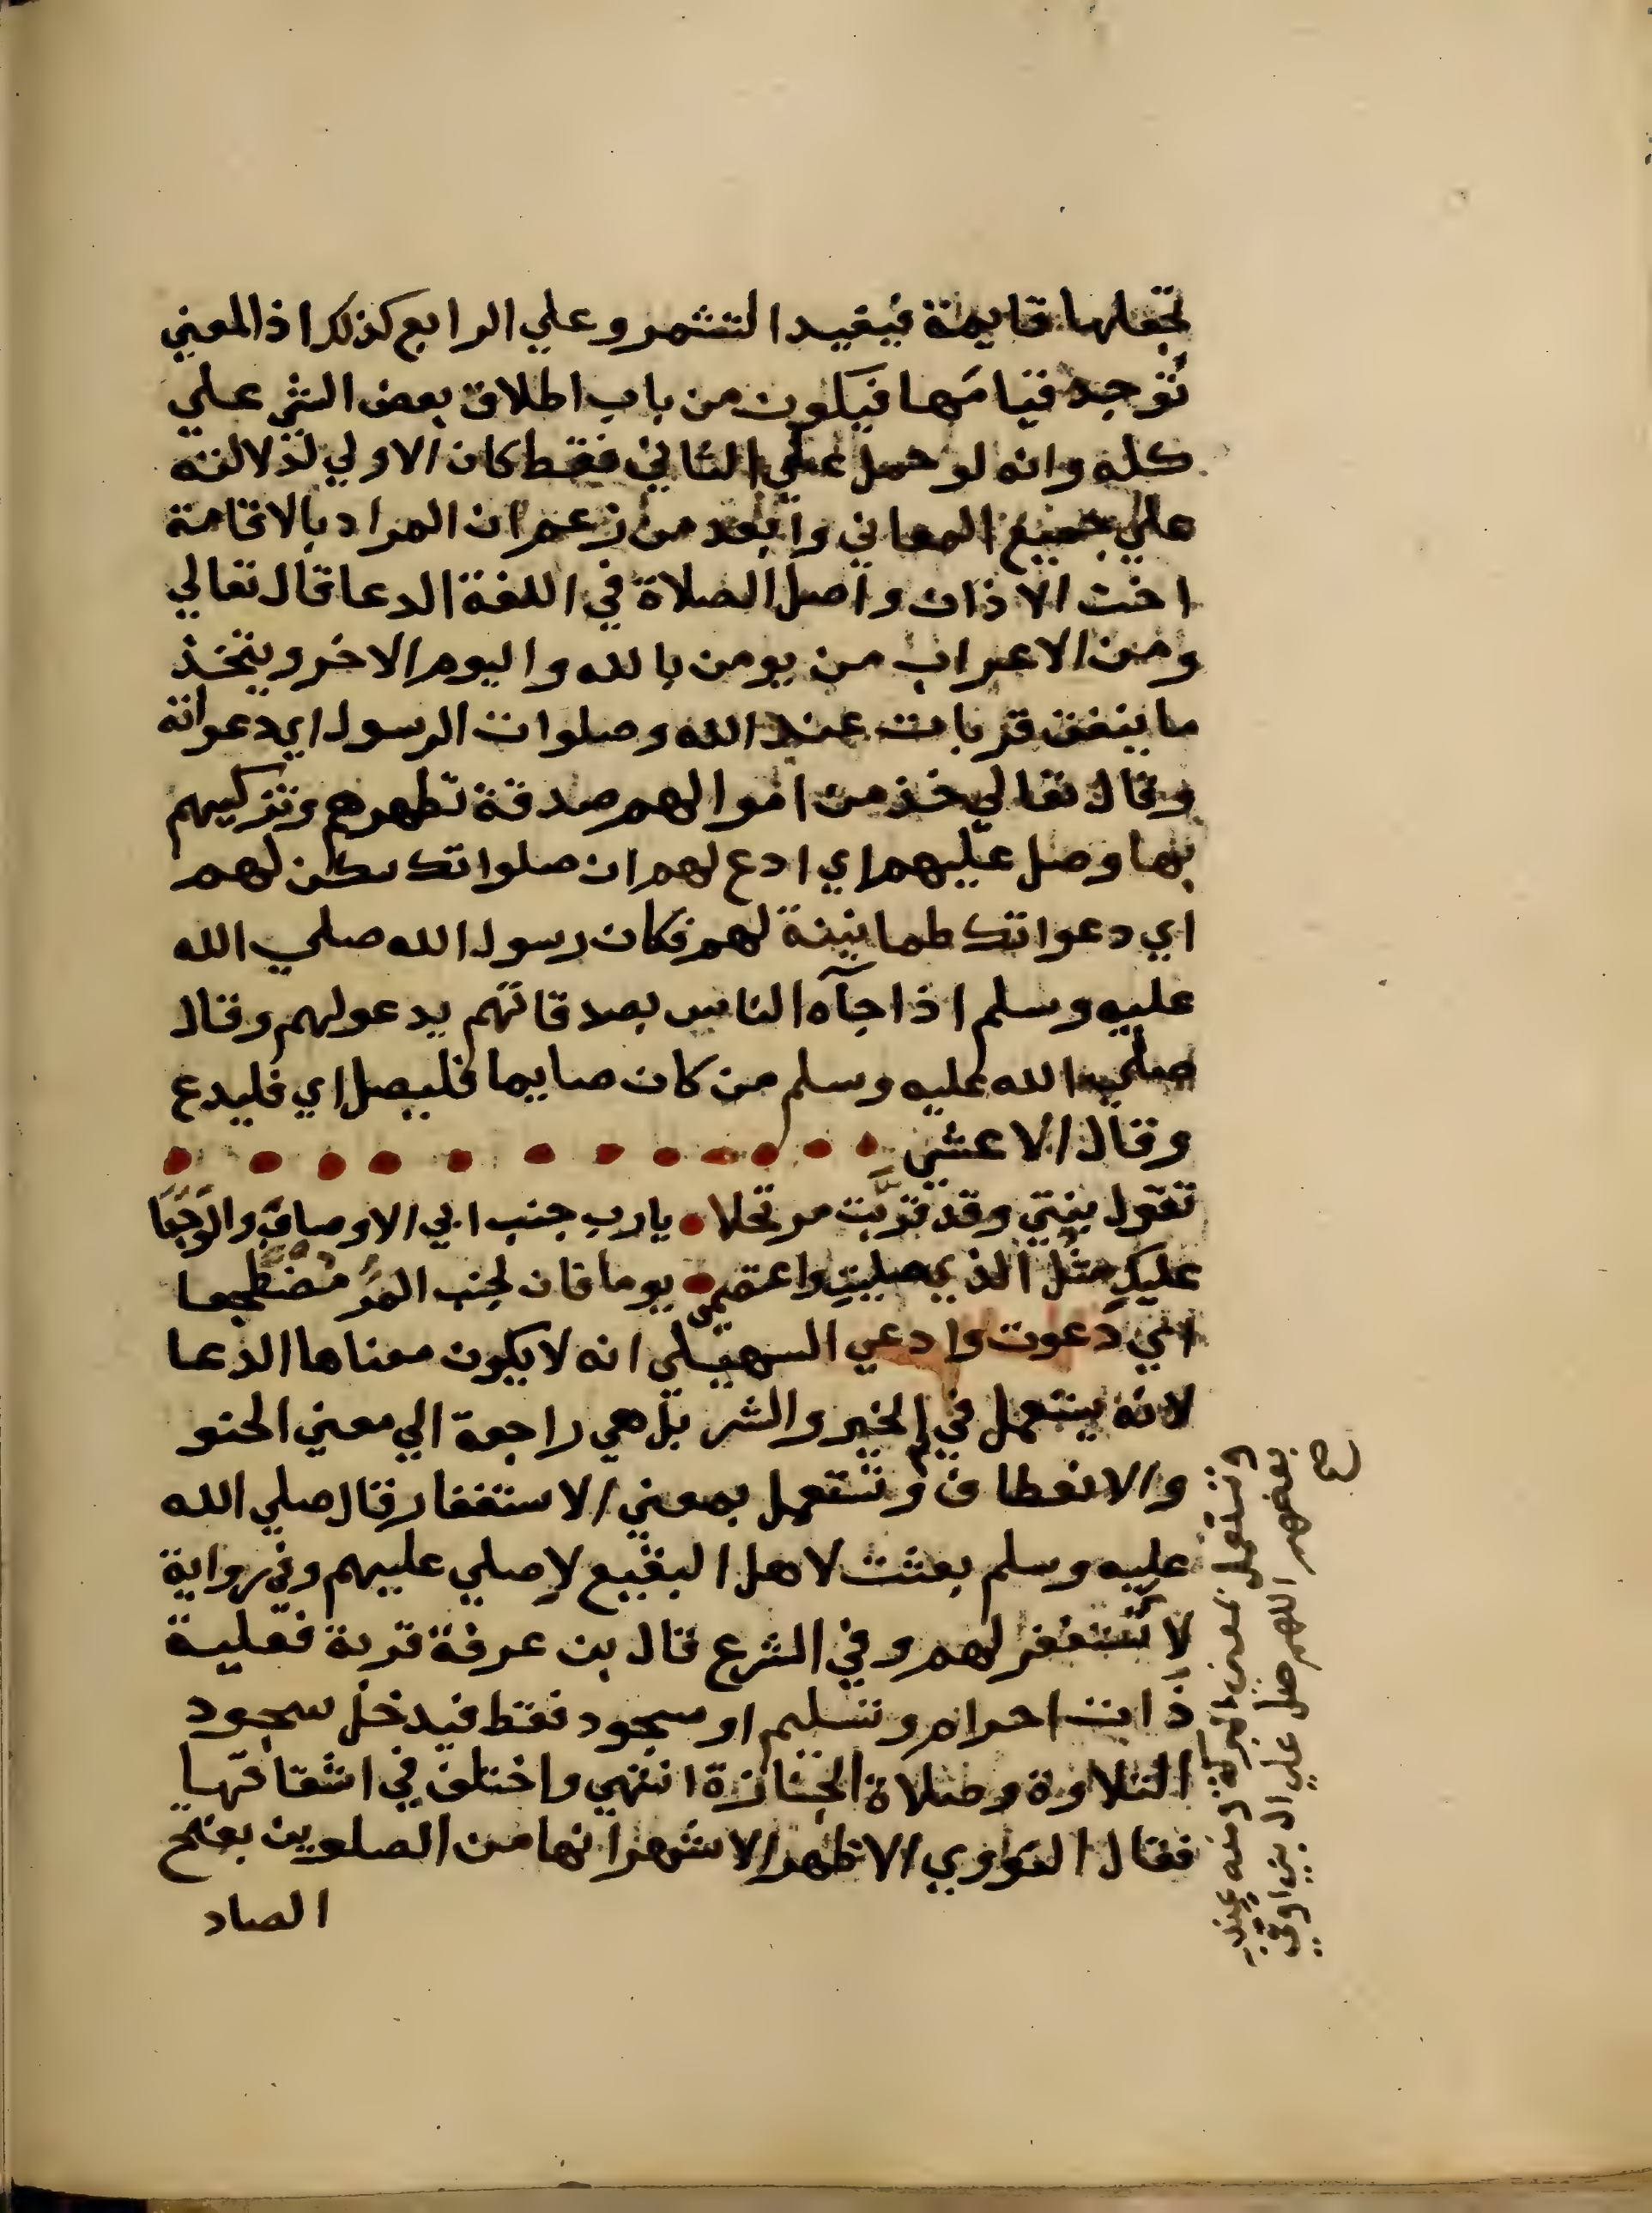 تجعلها قايمة فيفيد التشمر وعلي الرابع كذلك اذ المعني
تُوجد قيامَها فيكون من باب اطلاق بعض الشي علي
كله وانه لو حمل علي الثاني فقط كان الاولي لدلالته
علي جميع المعاني وابعد من زعم ان المراد بالاقامة
اخت الاذان واصل الصلاة في اللغة الدعا قال تعالي
ومن الاعراب من يومن بالله واليوم الاخر ويتخذ
ما ينفق قربات عند الله وصلوات الرسول اي دعواته
وقال تعالي خذ من اموالهم صدقة تطهرهم وتزكيهم
بها وصل عليهم اي ادع لهم ان صلواتك سكن لهم
اي دعواتك طمانينة لهم فكان رسول الله صلي الله
عليه وسلم اذا جآه الناس بصدقاتهم يدعولهم وقال
صلي الله عليه وسلم من كان صايما فليصل اي فليدع
وقال الاعشي
تقول بنتي وقد قرَّبت مرتحلا يارب جنب ابي الاوصابَ والوَجَعَا
عليكِ مثلُ الذي صليتِ واعتصمي يوما فان لجنب المرُّ مُضْطَجعا
اني دعوت وادعي السهيلي انه لا يكون معناها الدعا
لانه يستعمل في الخير والشر بل هي راجعة الي معني الحنو
والانعطاف وتستعمل بمعني الاستغفار قال صلي الله
عليه وسلم بعثت لاهل البقيع لاصلي عليهم وفي رواية
لاَستغفر لهم وفي الشرع قال بن عرفة قربة فعلية
ذات احرام وتسليم او سجود فقط فيدخل سجود
التلاوة وصلاة الجنازة انتهي واختلف في اشتقاقها
فقال النواوي الاظهر الاشهر انها من الصلوين بفتح
الصاد
وتستعمل بمعني البركة ومنه عند
بعضهم اللهم صل علي ال ابي اوفي
صح